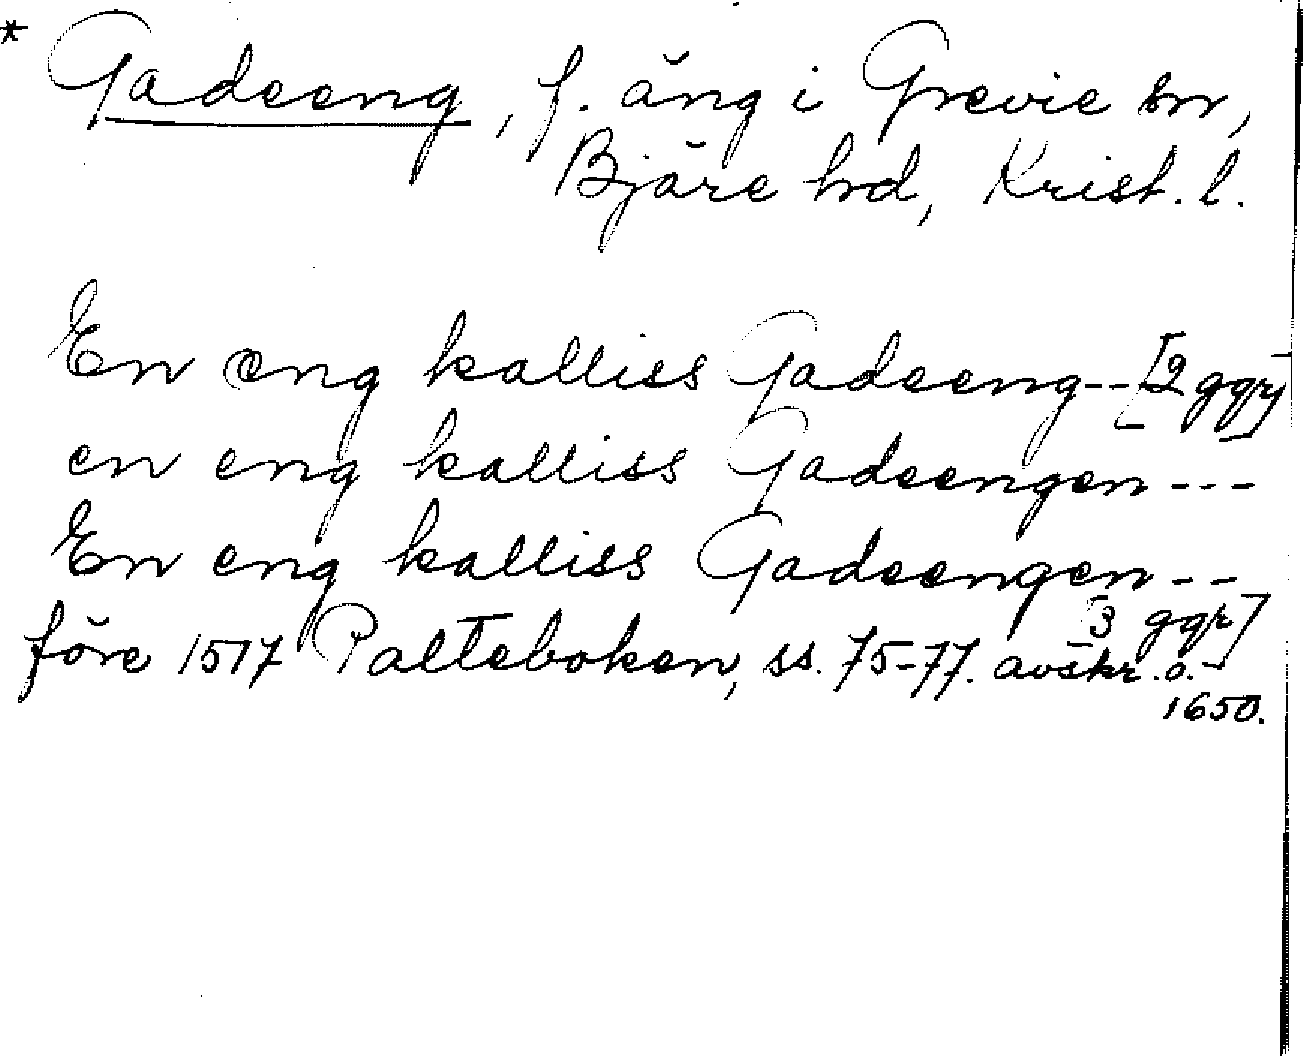 * Gadeeng, f. äng i Grevie sn,
Bjäre hd, Krist. l.
En eng kalliss Gadeeng--[2 ggr]
en eng kalliss Gadeengen---
En eng kalliss Gadeengen--
[3 ggr]
före 1517 Palteboken, ss. 75-77. avskr. o.
1650.